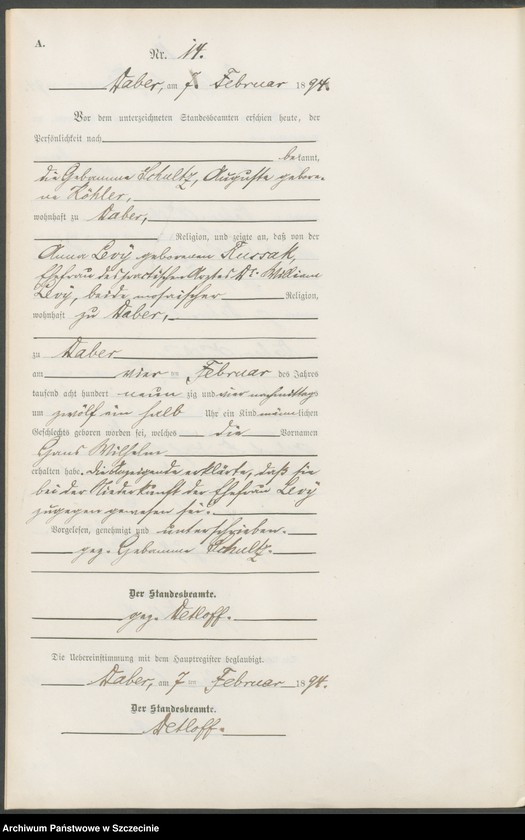 A.
Nr. 14.
Daber, am 7. Februar 1894.
Vor dem unterzeichneten Standesbeamten erschien heute, der
Persönlichkeit nach
bekannt,
die Hebamme Schultz, Auguste gebore-
ne Köhler,
wohnhaft zu Daber,
Religion, und zeigte an, daß von der
Anna Levÿ geborenen Kussak,
Ehefrau des practischen Arztes Dr. William
Levÿ, beide mosaischer Religion,
wohnhaft zu Daber,
zu Daber
am vier ten Februar des Jahres
tausend acht hundert neun zig und vier nachmittags
um zwölf ein halb Uhr ein Kind männlichen
Geschlechts geboren worden sei, welches die Vornamen
Hans Wilhelm
erhalten habe. Die Anzeigende erklärte, daß sie
bei der Niederkunft der Ehefrau Levÿ
zugegen gewesen sei.
Vorgelesen, genehmigt und unterschrieben.
gez. Hebamme Schultz.
Der Standesbeamte.
gez. Detloff.
Die Uebereinstimmung mit dem Hauptregister beglaubigt.
Daber, am 7 ten Februar 1894.
Der Standesbeamte.
Detloff.
Archiwum Państwowe w Szczecinie